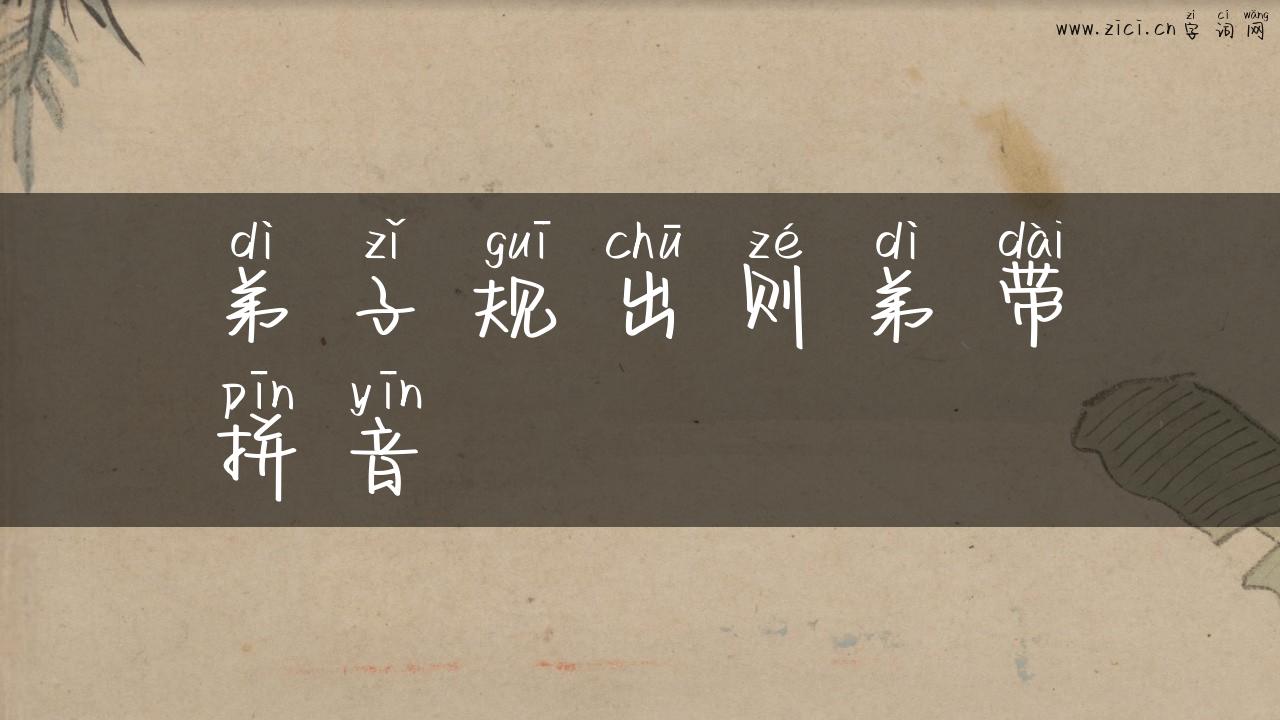 zì cí wǎng
www.zici.cn 字词网
dì zǐ guī chū zé dì dài
弟子规出则弟带
pīn yīn
拼音